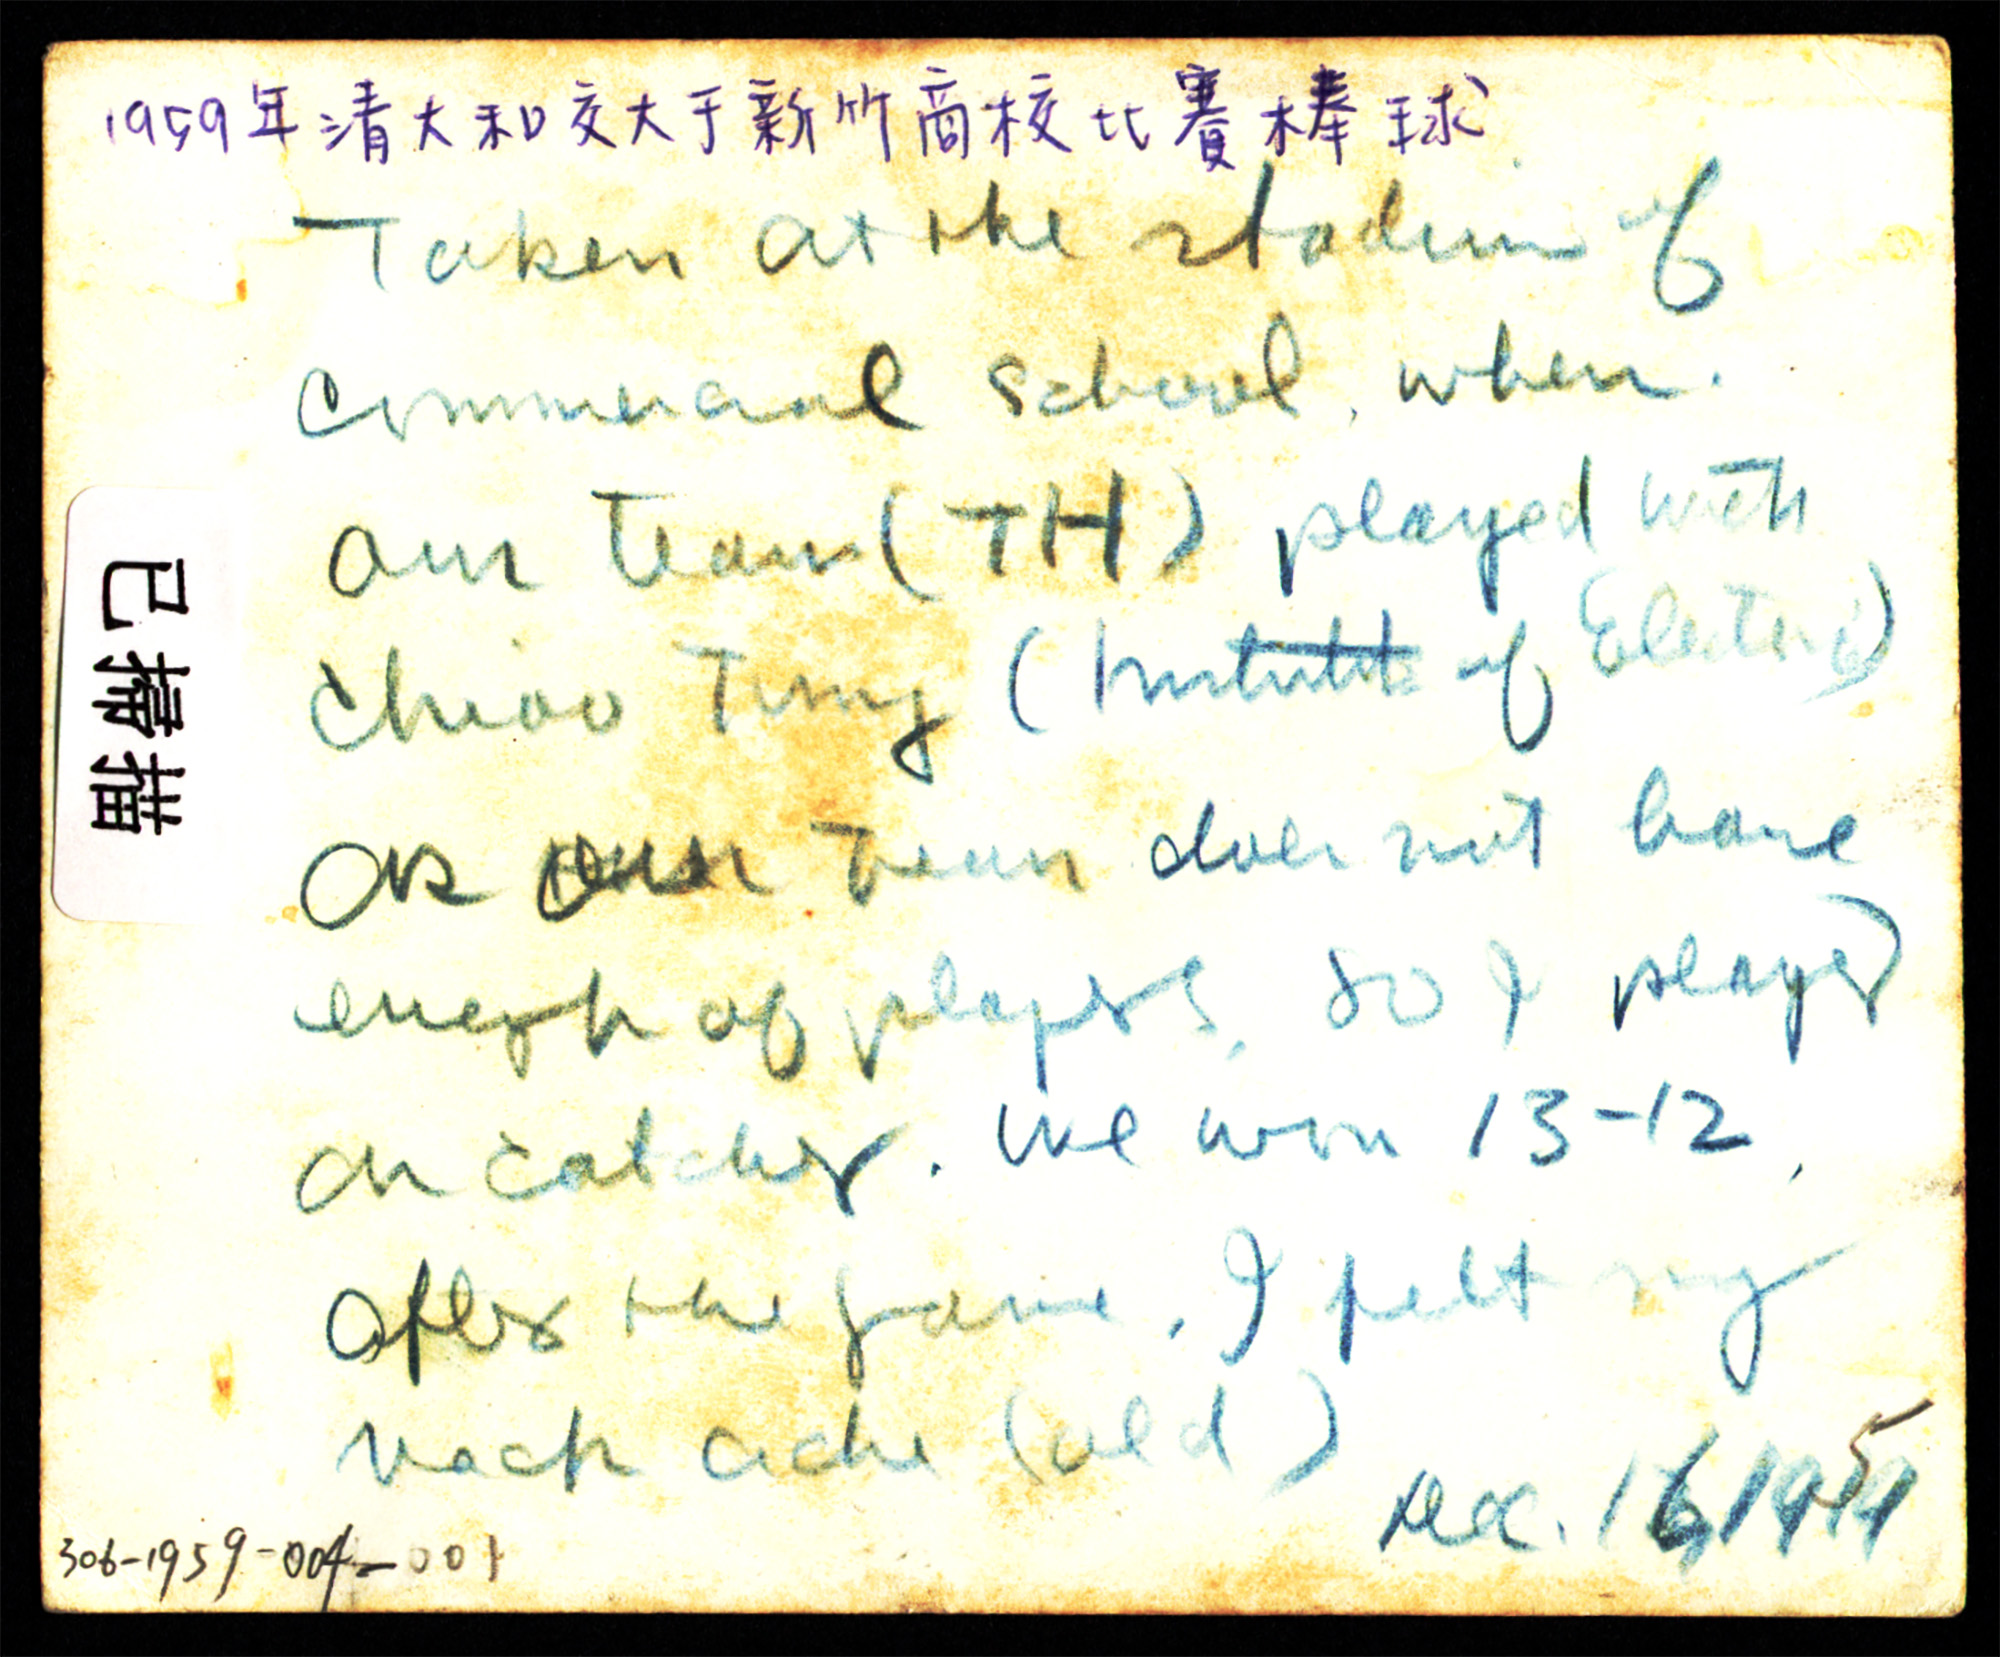 1959年清大和交大于新竹商校比賽棒球
Taken at the stadium of
commercial school, when
our team (TH) played with
Chiao Tung (Institute of Electronic)
As our team does not have
enough of players, so I played
as catcher. We won 13-12,
after the game, I felt my
neck ache (old)
Dec. 16, 1959
306-1959-004-001
已掃描